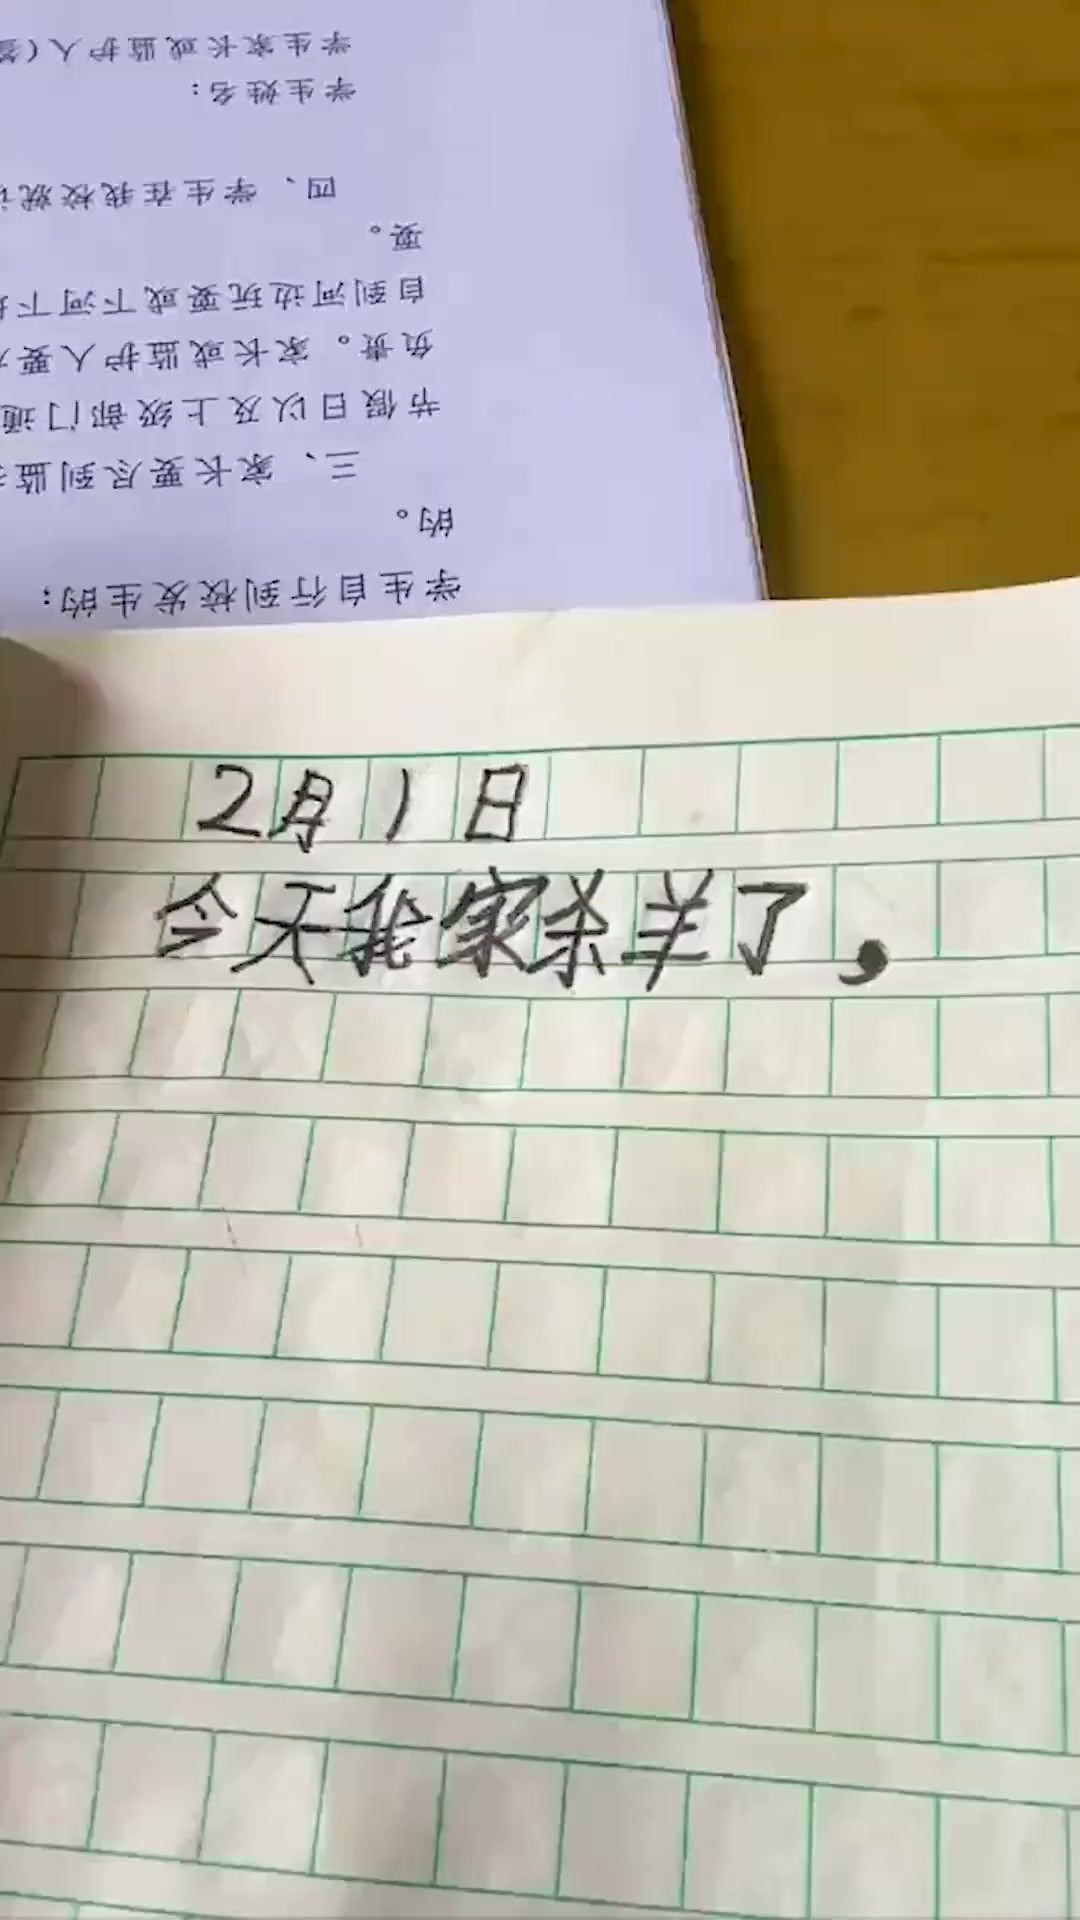 学生家长或监护人（签
学生姓名：
四、学生在我校就读
要。
自到河边玩耍或下河下
负责。家长或监护人要对
节假日以及上级部门通
三、家长要尽到监护
的。
学生自行到校发生的；
2月1日
今天我家杀羊了，